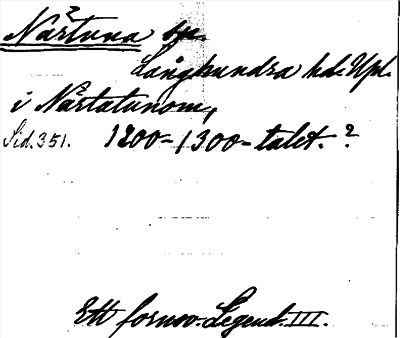 Närtuna sp.
Långhundra hd. Upl.
i Nærtatunom,
Sid. 351. 1200-1300-talet.?
Ett fornsv. Legend. III.